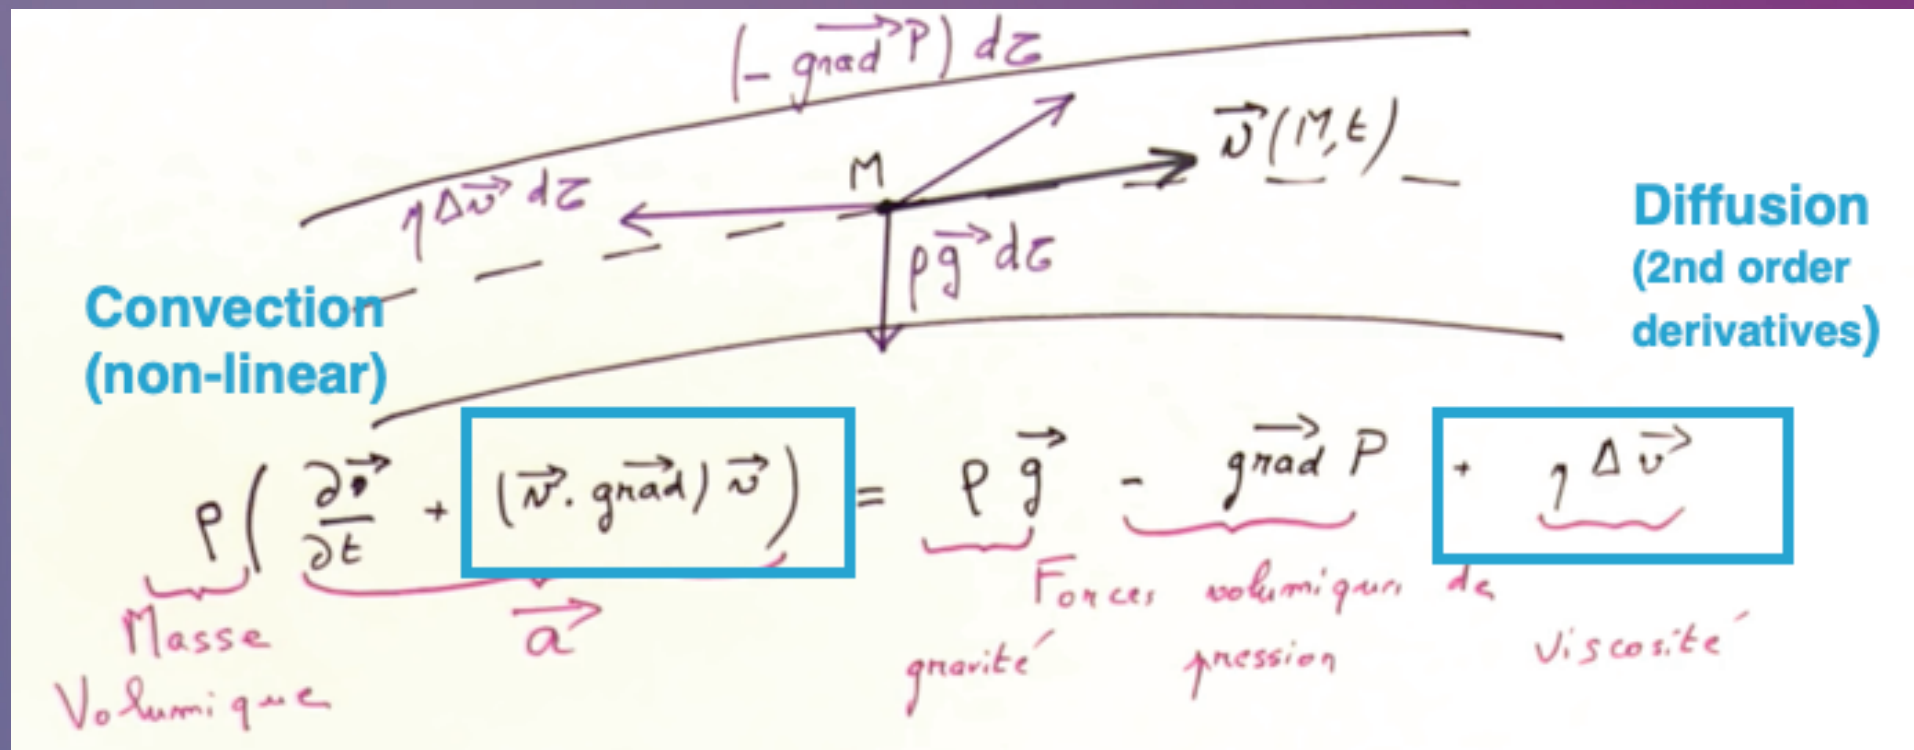 (- grad P) dτ
M
v(M,t)
η Δv dτ
ρg dτ
Diffusion
(2nd order
derivatives)
Convection
(non-linear)
ρ( ∂v/∂t + (v. grad) v ) = ρ g - grad P + η Δ v
Masse
Volumique
a
Forces volumiques de
gravité pression viscosité